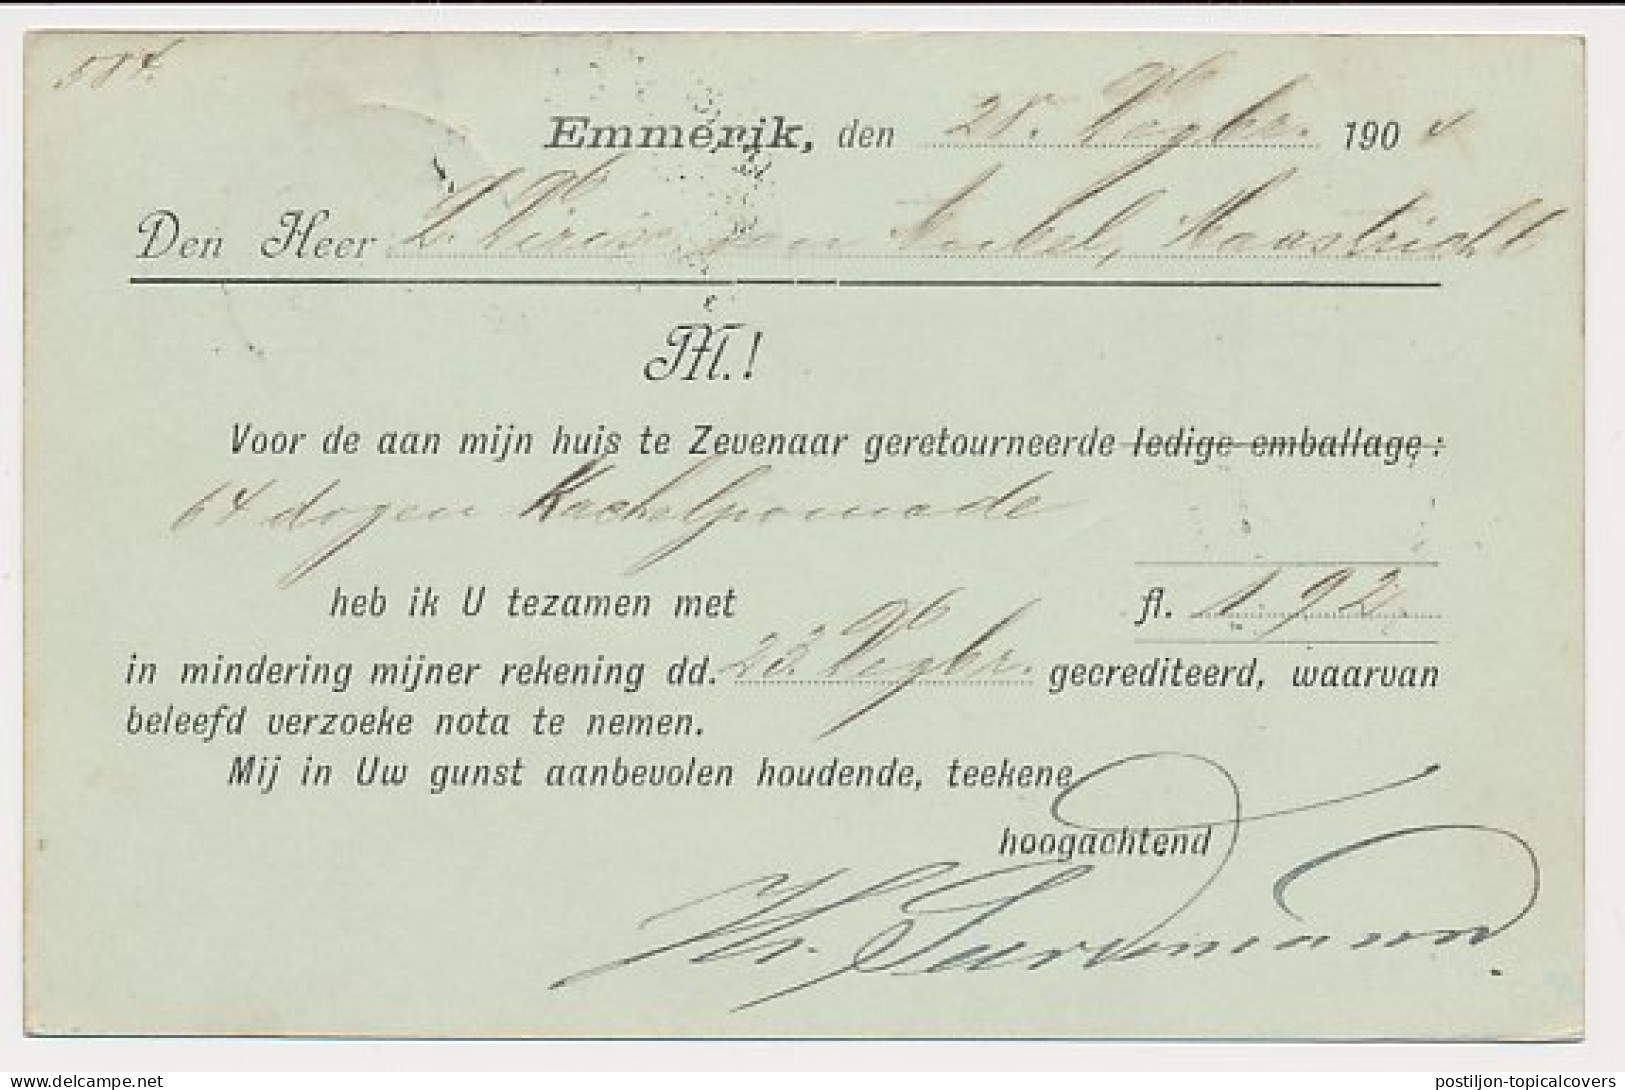 Emmerik, den 28. 190 4
Den Heer van Maastricht
M.!
Voor de aan mijn huis te Zevenaar geretourneerde ledige emballage:
64 dozen Kachelpomade
heb ik U tezamen met fl. 1.92
in mindering mijner rekening dd. 23. gecrediteerd, waarvan
beleefd verzoeke nota te nemen.
Mij in Uw gunst aanbevolen houdende, teekene
hoogachtend
© postiljon-topicalcovers / delcampe.net